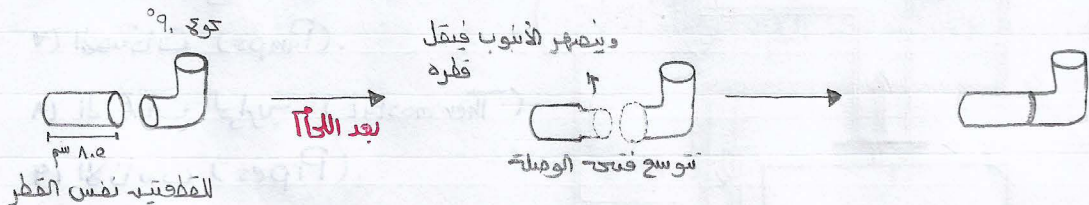 كوع ٩٠°
٨.٥ سم
للقطعتين نفس القطر
بعد اللحام
وينصهر الأنبوب فيقل
قطره
تتوسع فتحة الوصلة